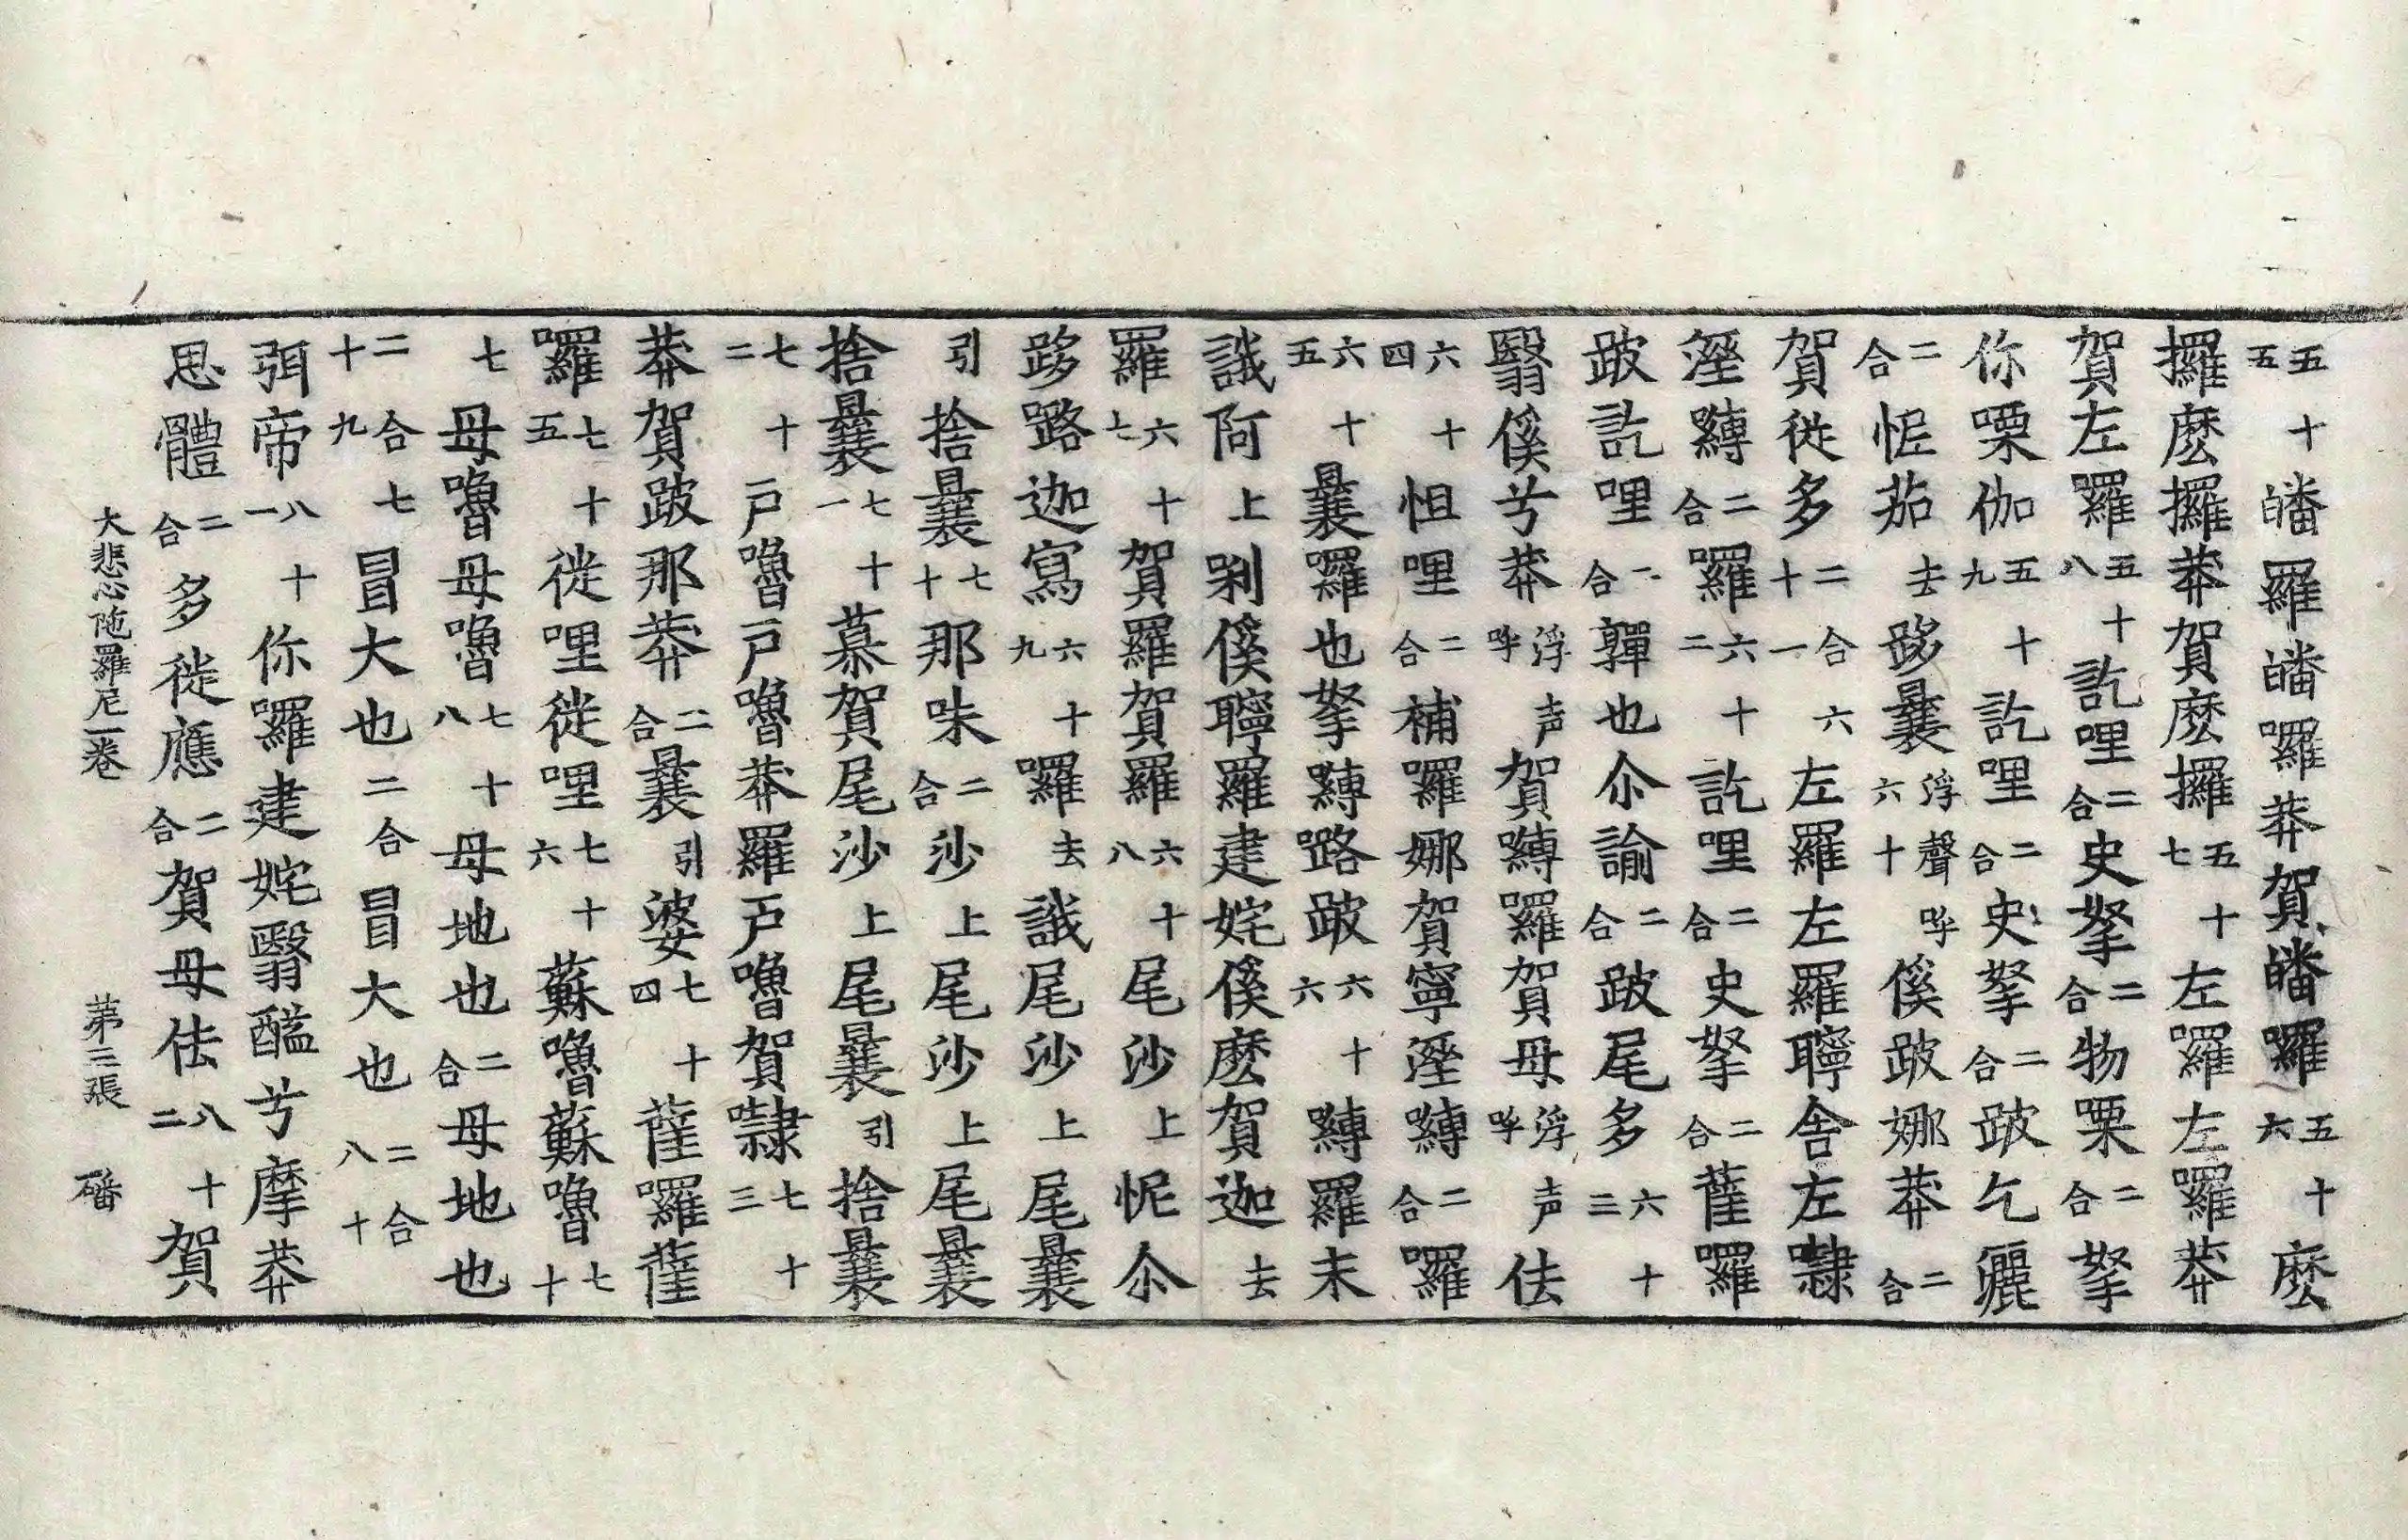 五十五皤羅皤囉莽賀皤囉五十六麽
攞麽攞莽賀麽攞五十七左羅左羅莽
賀左羅五十八訖哩二合史拏二合物栗二合拏
你㗚伽五十九訖哩二合史拏二合跛乞灑
二合怩茄去跢曩浮聲六十呼傒跛娜莽二合
賀徙多二合六十一左羅左羅聹舍左㘑
濕嚩二合羅六十二訖哩二合史拏二合薩囉
跛訖哩一合鞸也尒諭二合跛尾多六十三
翳傒兮莽浮声呼賀嚩羅賀母浮声呼佉
六十四怛哩二合補囉娜賀寧濕嚩二合囉
六十五曩囉也拏嚩路跛六十六嚩羅末
誐阿上剎傒聹羅建姹傒麽賀迦去
羅六十七賀羅賀羅六十八尾沙上怩尒
跢路迦寫六十九囉去誐尾沙上尾曩
引捨曩七十那味二合沙上尾沙上尾曩
捨曩七十一慕賀尾沙上尾曩引捨曩
七十二戸嚕戸嚕莽羅戸嚕賀㘑七十三
莽賀跛那莽二合曩引婆七十四薩囉薩
囉七十五徙哩徙哩七十六蘇嚕蘇嚕七十
七母嚕母嚕七十八母地也二合母地也
二合七十九冒大也二合冒大也二合八十
弭帝八十一你羅建姹翳醯兮摩莽
思體二合多徙應二合賀母佉八十二賀
大悲心陁羅尼一卷　苐三張　磻